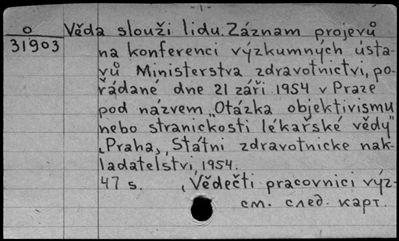 - 1 -
O Věda slouží lidu. Záznam projevů
31903
na konferenci výzkumných ústa-
vů Ministerstva zdravotnictvi, po-
řádané dne 21 září 1954 v Praze
pod názvem „Otázka objektivismu
nebo stranickosti lékařské vědy"
, Praha, Státni zdravotnicke nak-
ladatelstvi, 1954.
47 s. (Vědečti pracovnici výz-
см. след. карт.